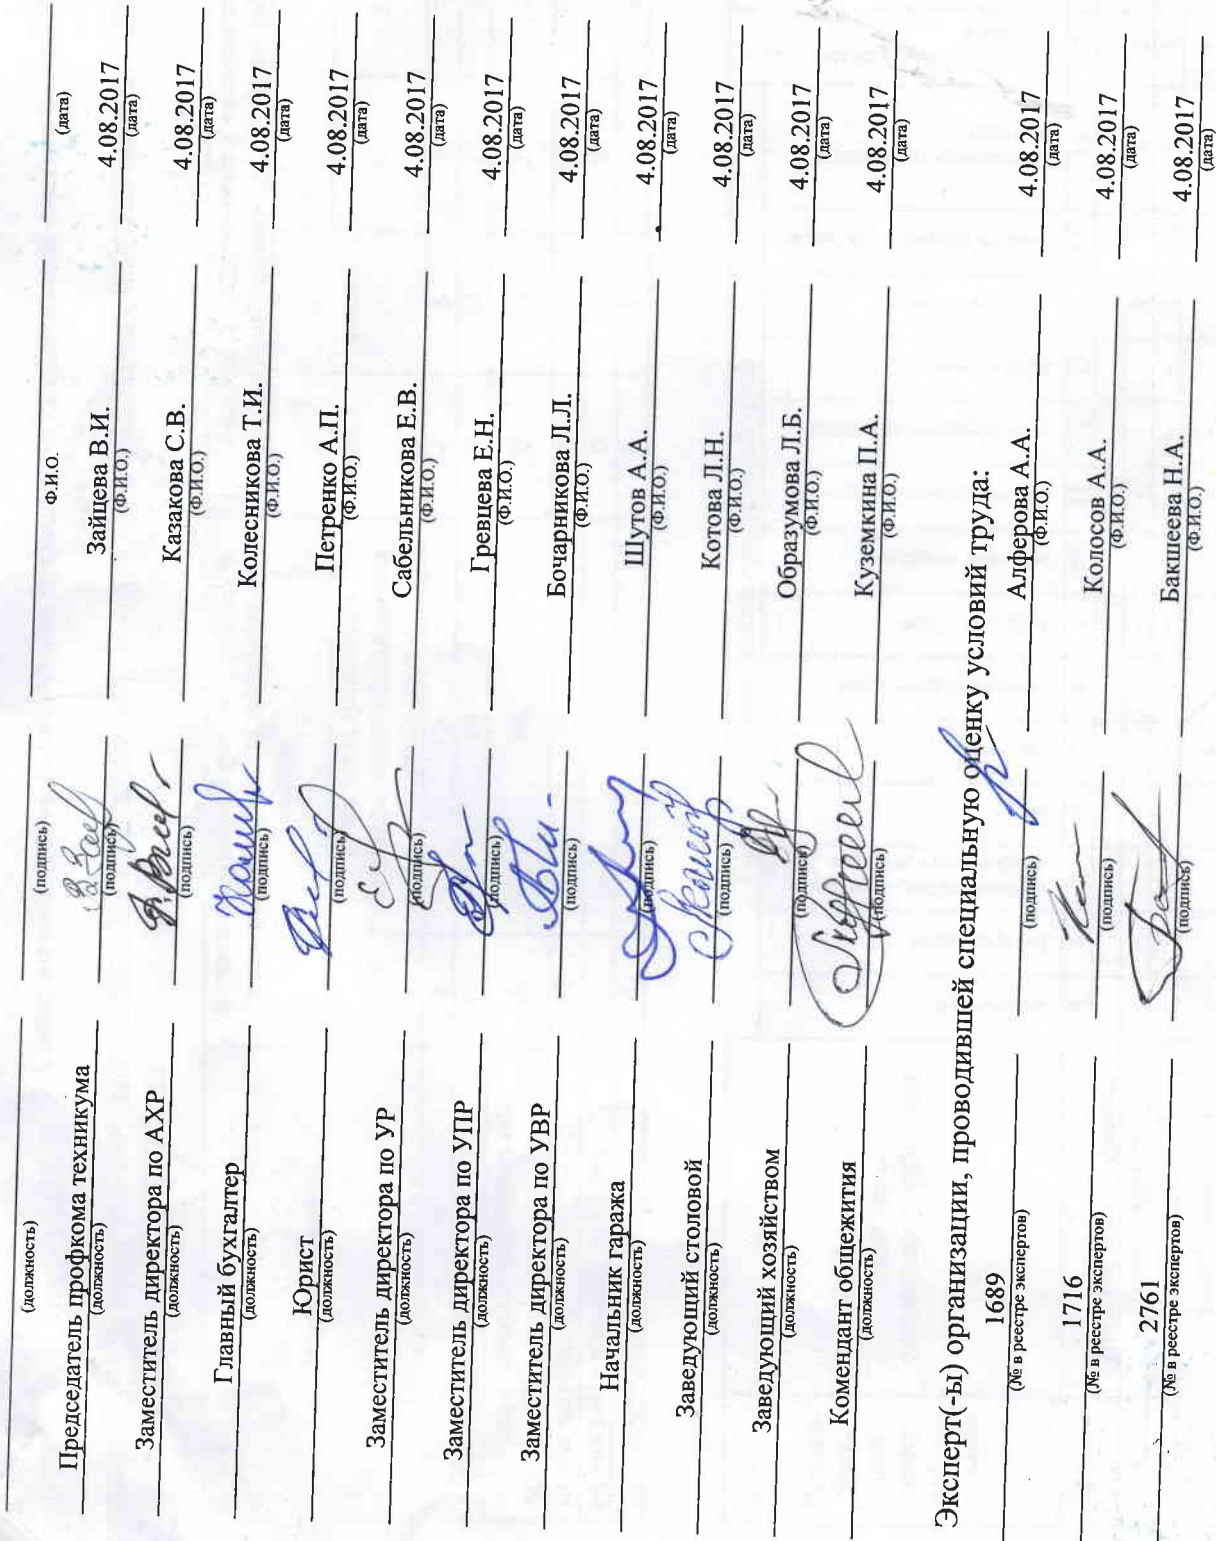 (должность) (подпись) Ф.И.О. (дата)
Председатель профкома техникума Зайцева В.И. 4.08.2017
(должность) (подпись) (Ф.И.О.) (дата)
Заместитель директора по АХР Казакова С.В. 4.08.2017
(должность) (подпись) (Ф.И.О.) (дата)
Главный бухгалтер Колесникова Т.И. 4.08.2017
(должность) (подпись) (Ф.И.О.) (дата)
Юрист Петренко А.П. 4.08.2017
(должность) (подпись) (Ф.И.О.) (дата)
Заместитель директора по УР Сабельникова Е.В. 4.08.2017
(должность) (подпись) (Ф.И.О.) (дата)
Заместитель директора по УПР Гревцева Е.Н. 4.08.2017
(должность) (подпись) (Ф.И.О.) (дата)
Заместитель директора по УВР Бочарникова Л.Л. 4.08.2017
(должность) (подпись) (Ф.И.О.) (дата)
Начальник гаража Шутов А.А. 4.08.2017
(должность) (подпись) (Ф.И.О.) (дата)
Заведующий столовой Котова Л.Н. 4.08.2017
(должность) (подпись) (Ф.И.О.) (дата)
Заведующий хозяйством Образумова Л.Б. 4.08.2017
(должность) (подпись) (Ф.И.О.) (дата)
Комендант общежития Куземкина П.А. 4.08.2017
(должность) (подпись) (Ф.И.О.) (дата)
Эксперт(-ы) организации, проводившей специальную оценку условий труда:
1689 Алферова А.А. 4.08.2017
(№ в реестре экспертов) (подпись) (Ф.И.О.) (дата)
1716 Колосов А.А. 4.08.2017
(№ в реестре экспертов) (подпись) (Ф.И.О.) (дата)
2761 Бакшеева Н.А. 4.08.2017
(№ в реестре экспертов) (подпись) (Ф.И.О.) (дата)